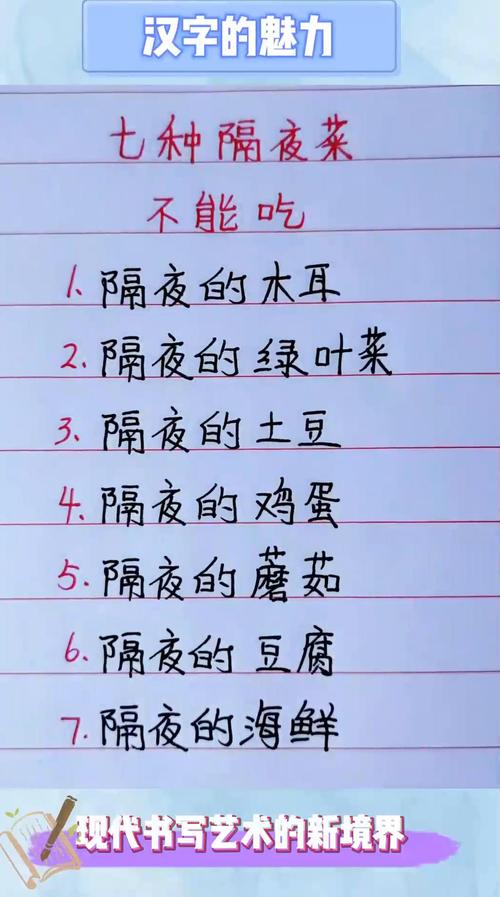 汉字的魅力
七种隔夜菜
不能吃
1. 隔夜的木耳
2. 隔夜的绿叶菜
3. 隔夜的土豆
4. 隔夜的鸡蛋
5. 隔夜的蘑茹
6. 隔夜的豆腐
7. 隔夜的海鲜
现代书写艺术的新境界